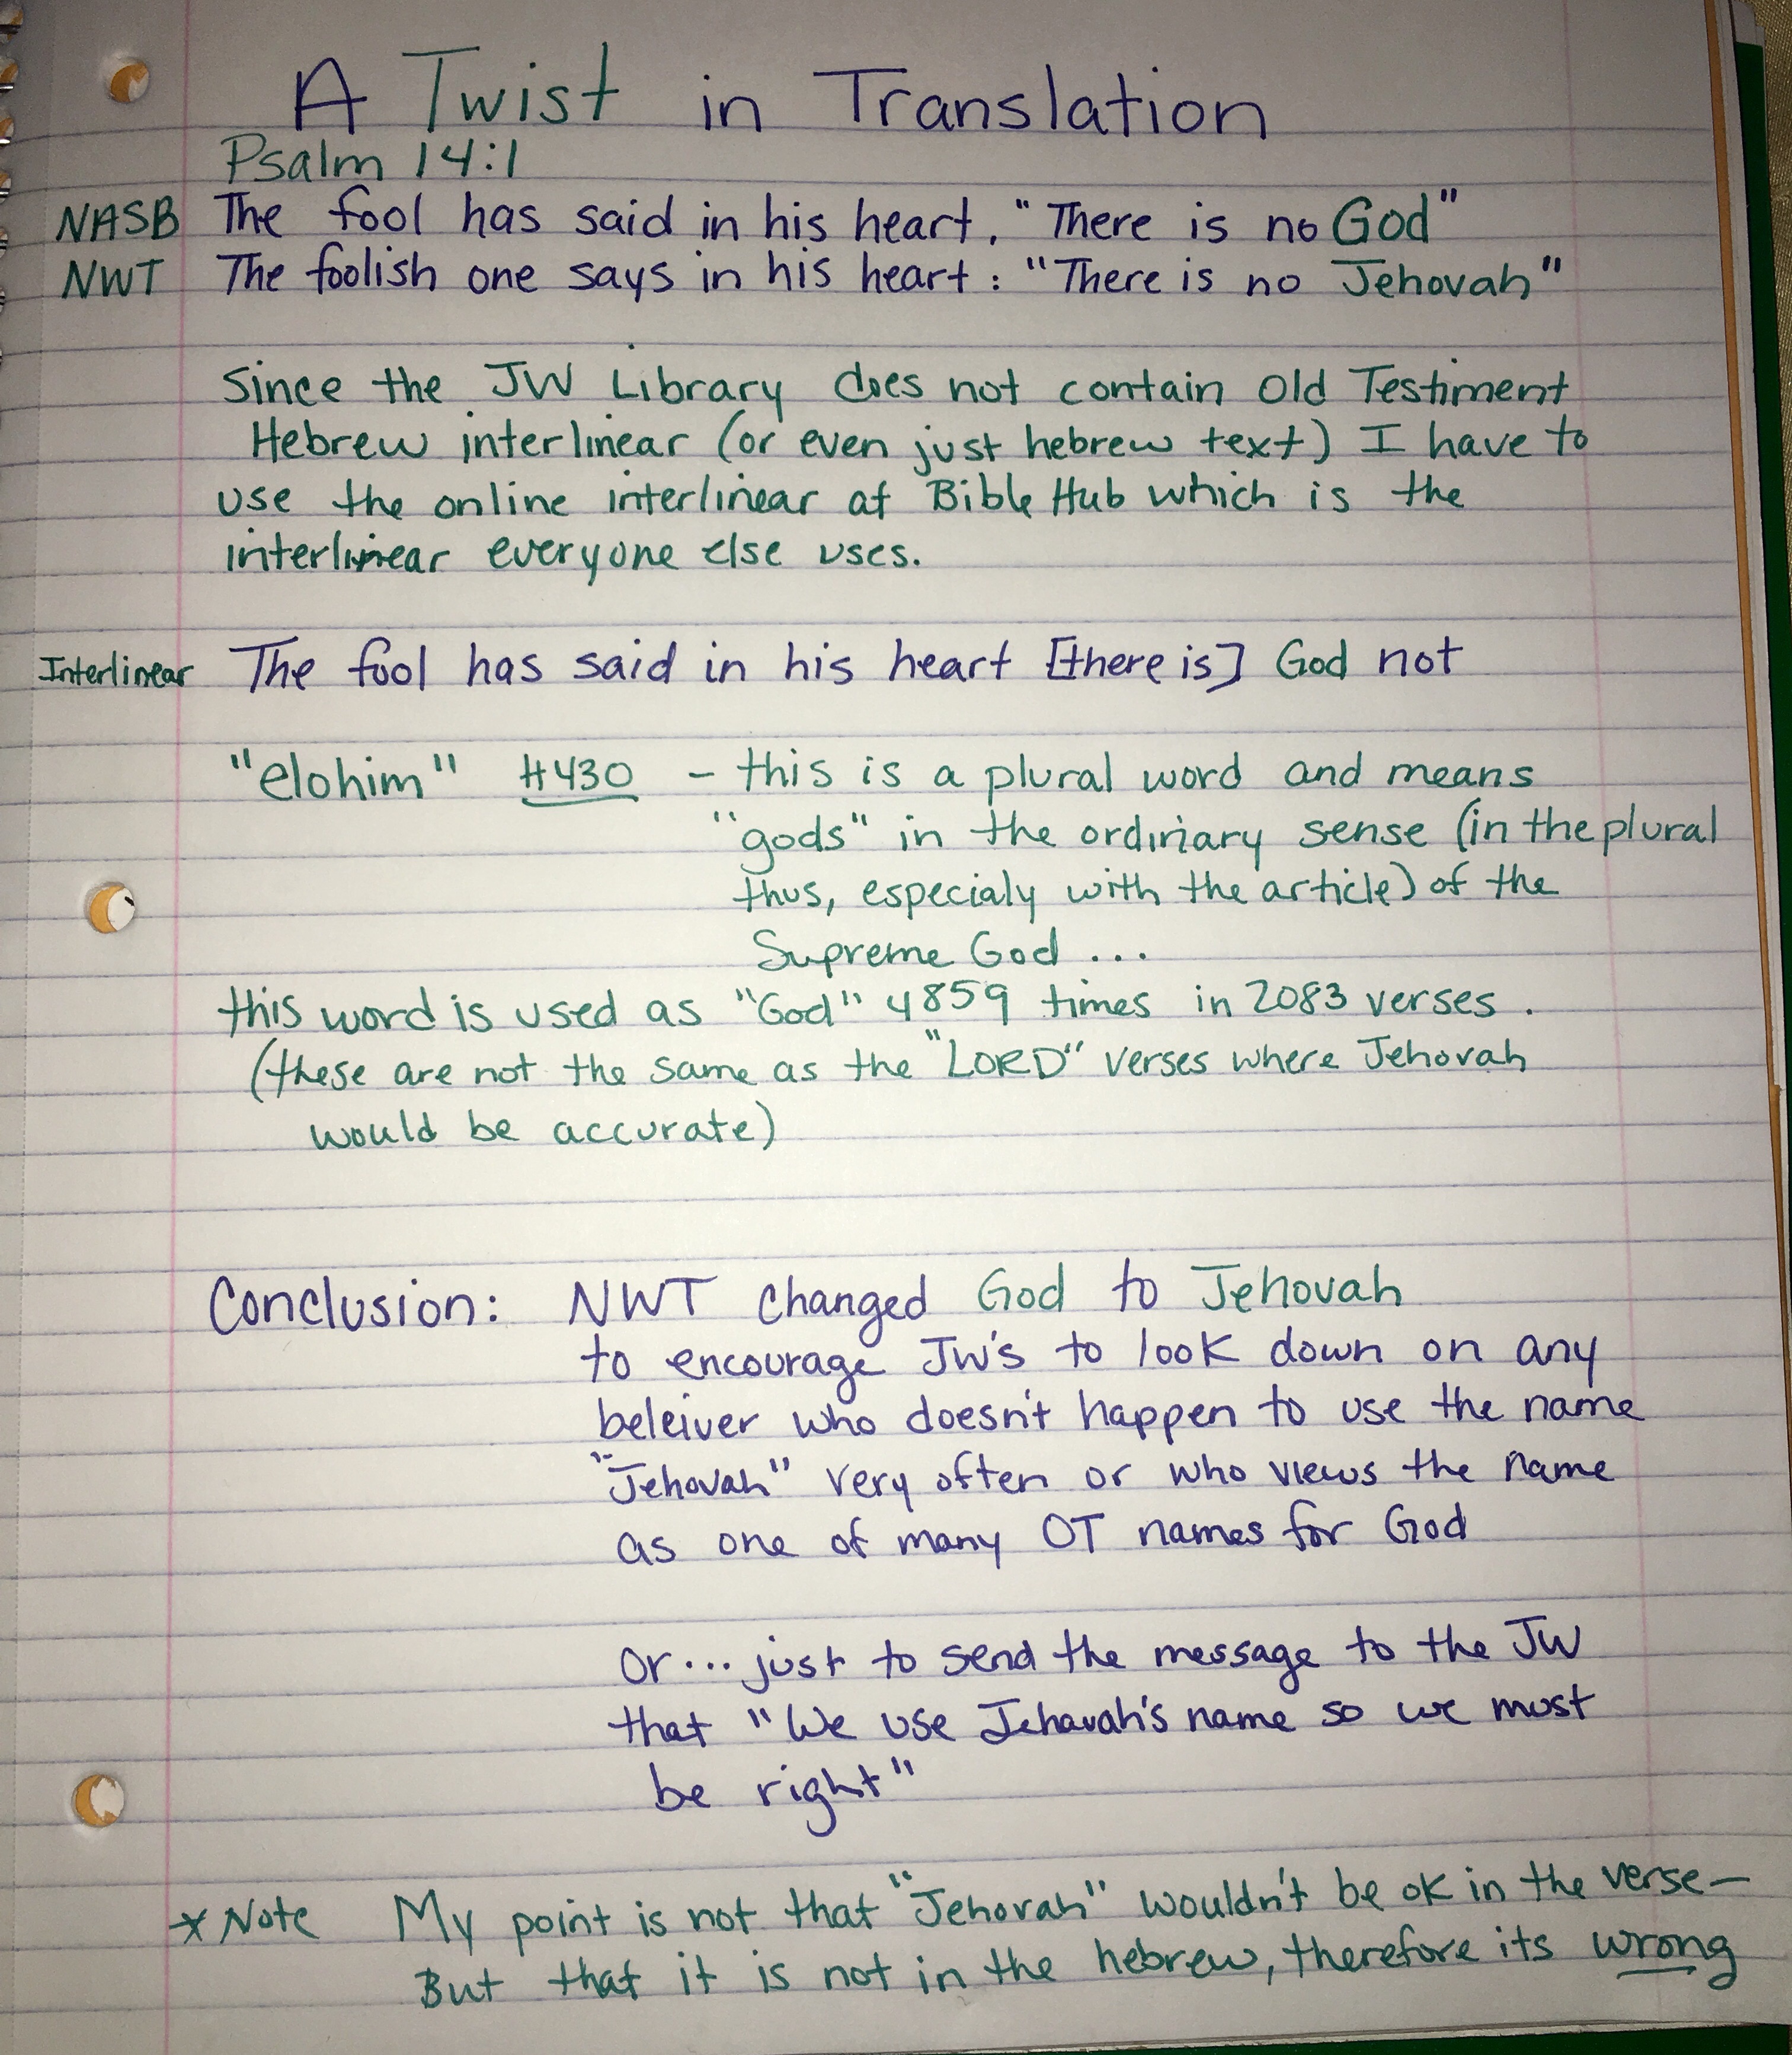 A Twist in Translation
Psalm 14:1
NASB The fool has said in his heart, "There is no God"
NWT The foolish one says in his heart: "There is no Jehovah"
Since the JW Library does not contain Old Testiment
Hebrew interlinear (or even just hebrew text) I have to
use the online interlinear at Bible Hub which is the
interlinear everyone else uses.
Interlinear The fool has said in his heart [there is] God not
"elohim" H430 - this is a plural word and means
"gods" in the ordinary sense (in the plural
thus, especialy with the article) of the
Supreme God ...
this word is used as "God" 4859 times in 2083 verses.
(these are not the same as the "LORD" verses where Jehovah
would be accurate)
Conclusion: NWT changed God to Jehovah
to encourage JW's to look down on any
beleiver who doesn't happen to use the name
"Jehovah" very often or who views the name
as one of many OT names for God
Or... just to send the message to the JW
that "We use Jehovah's name so we must
be right"
* Note My point is not that "Jehovah" wouldn't be ok in the verse-
But that it is not in the hebrew, therefore its wrong